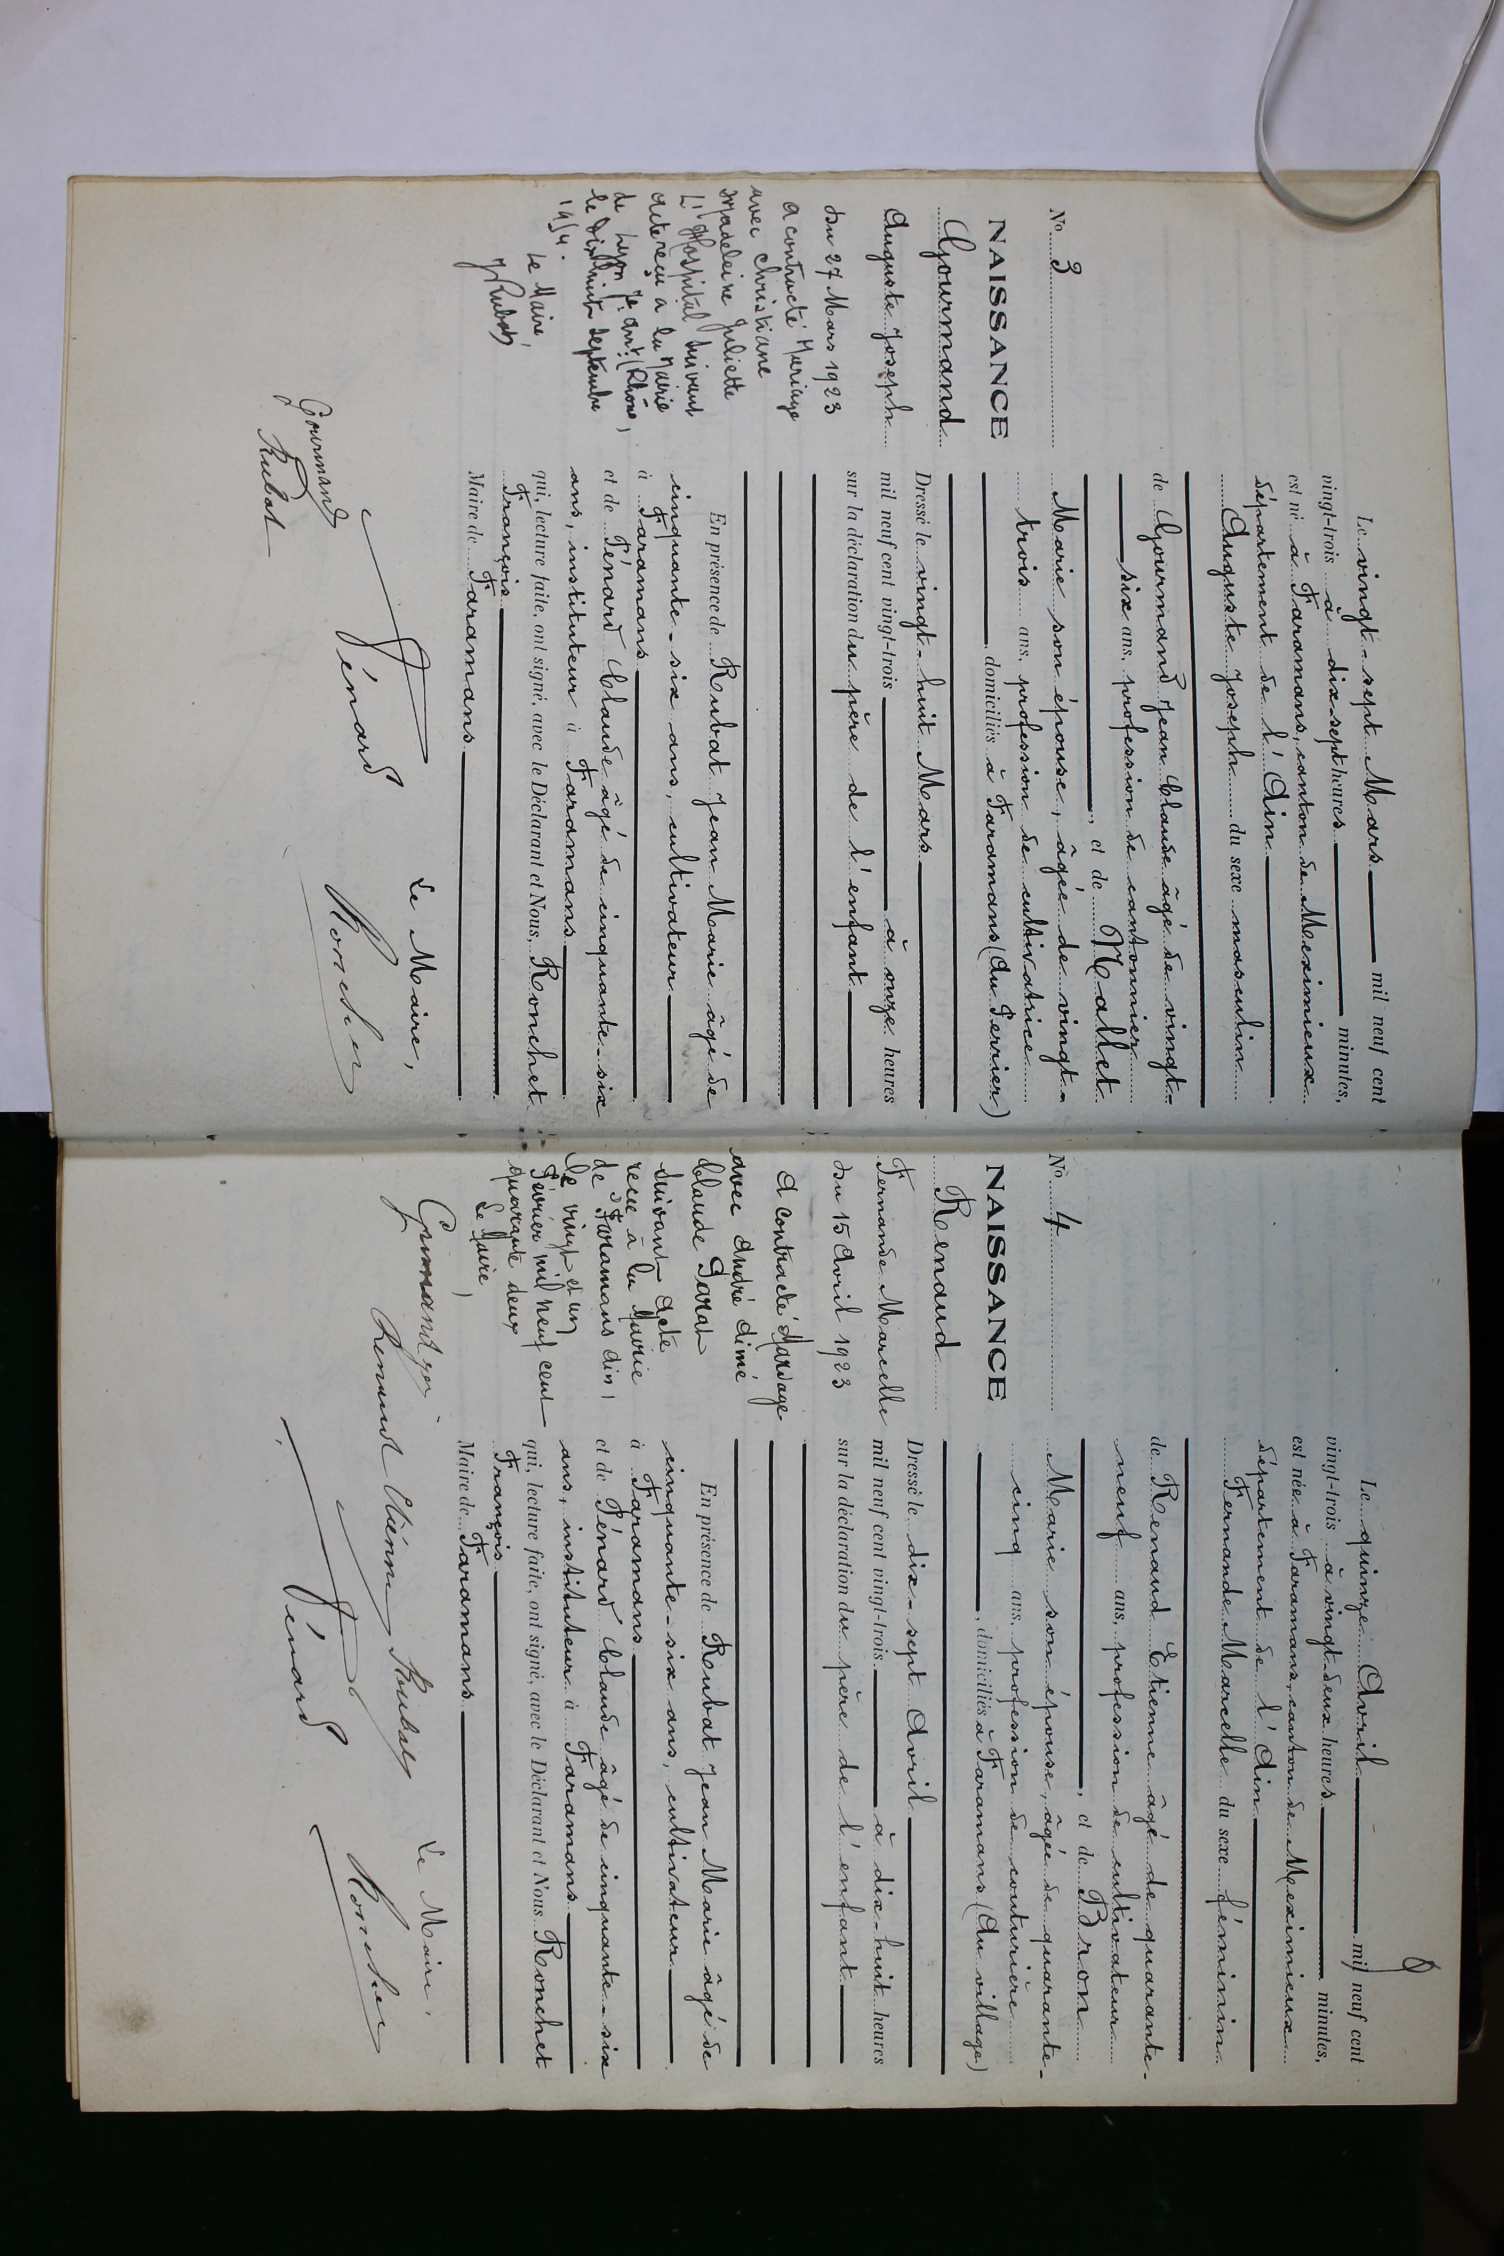 No 3
NAISSANCE
Gourmand
Auguste Joseph
du 27 Mars 1923
a contracté Mariage
avec Christiane
Madeleine Juliette
L'Hospital suivant
acte reçu à la Mairie
de Lyon 7e arrt. (Rhône)
le dix huit septembre
Le Maire,
JRubat
Le vingt-sept Mars mil neuf cent
vingt-trois à dix-sept heures minutes,
est né à Faramans, canton de Meximieux
département de l'Ain
Auguste Joseph du sexe masculin
de Gourmand Jean Claude âgé de vingt-
six ans, profession de cantonnier
, et de Mallet
Marie son épouse, âgée de vingt-
trois ans, profession de cultivatrice
, domiciliés à Faramans (Au Perrier)
Dressé le vingt-huit Mars
mil neuf cent vingt-trois à onze heures
sur la déclaration du père de l'enfant
En présence de Rubat Jean Marie âgé de
cinquante-six ans, cultivateur
à Faramans
et de Pénard Claude âgé de cinquante-six
ans, instituteur à Faramans
qui, lecture faite, ont signé, avec le Déclarant et Nous, Ronchet
François
Maire de Faramans
Le Maire,
Gourmand
Rubat
Pénard
Ronchet
8
No 4
NAISSANCE
Renaud
Fernande Marcelle
du 15 Avril 1923
a contracté Mariage
avec André Aimé
Claude Parat
suivant acte
reçu à la Mairie
de Faramans Ain,
le vingt et un
Février mil neuf cent
quarante deux
Le Maire,
Le quinze Avril mil neuf cent
vingt-trois à vingt-deux heures minutes,
est née à Faramans, canton de Meximieux
département de l'Ain
Fernande Marcelle du sexe féminin
de Renaud Etienne âgé de quarante-
neuf ans, profession de cultivateur
, et de Bron
Marie son épouse, âgée de quarante-
cinq ans, profession de couturière
, domiciliés à Faramans (Au village)
Dressé le dix-sept Avril
mil neuf cent vingt-trois à dix-huit heures
sur la déclaration du père de l'enfant
En présence de Rubat Jean Marie âgé de
cinquante-six ans, cultivateur
à Faramans
et de Pénard Claude âgé de cinquante-six
ans, instituteur à Faramans
qui, lecture faite, ont signé, avec le Déclarant et Nous Ronchet
François
Maire de Faramans
Le Maire,
Renaud Etienne Rubat
Pénard
Ronchet